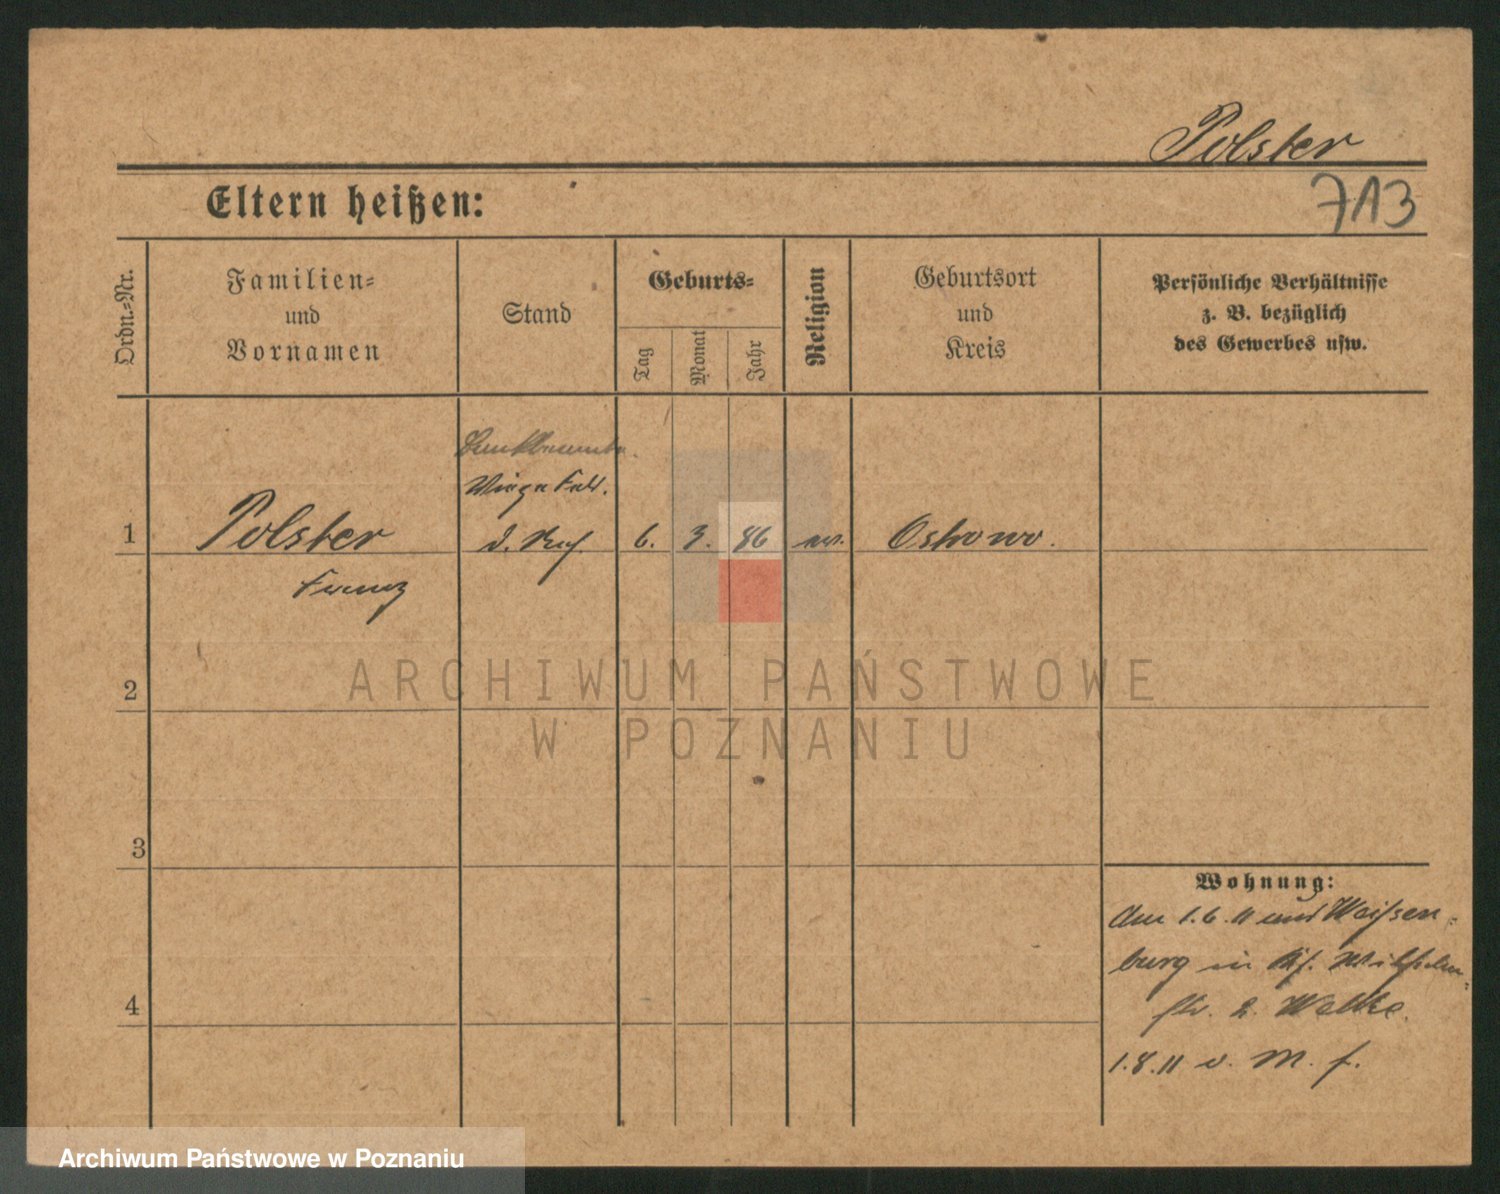 Polster
Eltern heißen:
713
Ordn.-Nr.
Familien-
und
Vornamen
Stand
Geburts-
Tag
Monat
Jahr
Religion
Geburtsort
und
Kreis
Persönliche Verhältnisse
z. B. bezüglich
des Gewerbes usw.
1
Polster
Franz
d. Res.
6.
3.
86
ev.
Ostrowo.
2
3
4
Wohnung:
Am 1.6.11 aus Weissen-
burg in Wilhelm
str. 2.
1.8.11 v. M. f.
ARCHIWUM PAŃSTWOWE
W POZNANIU
Archiwum Państwowe w Poznaniu